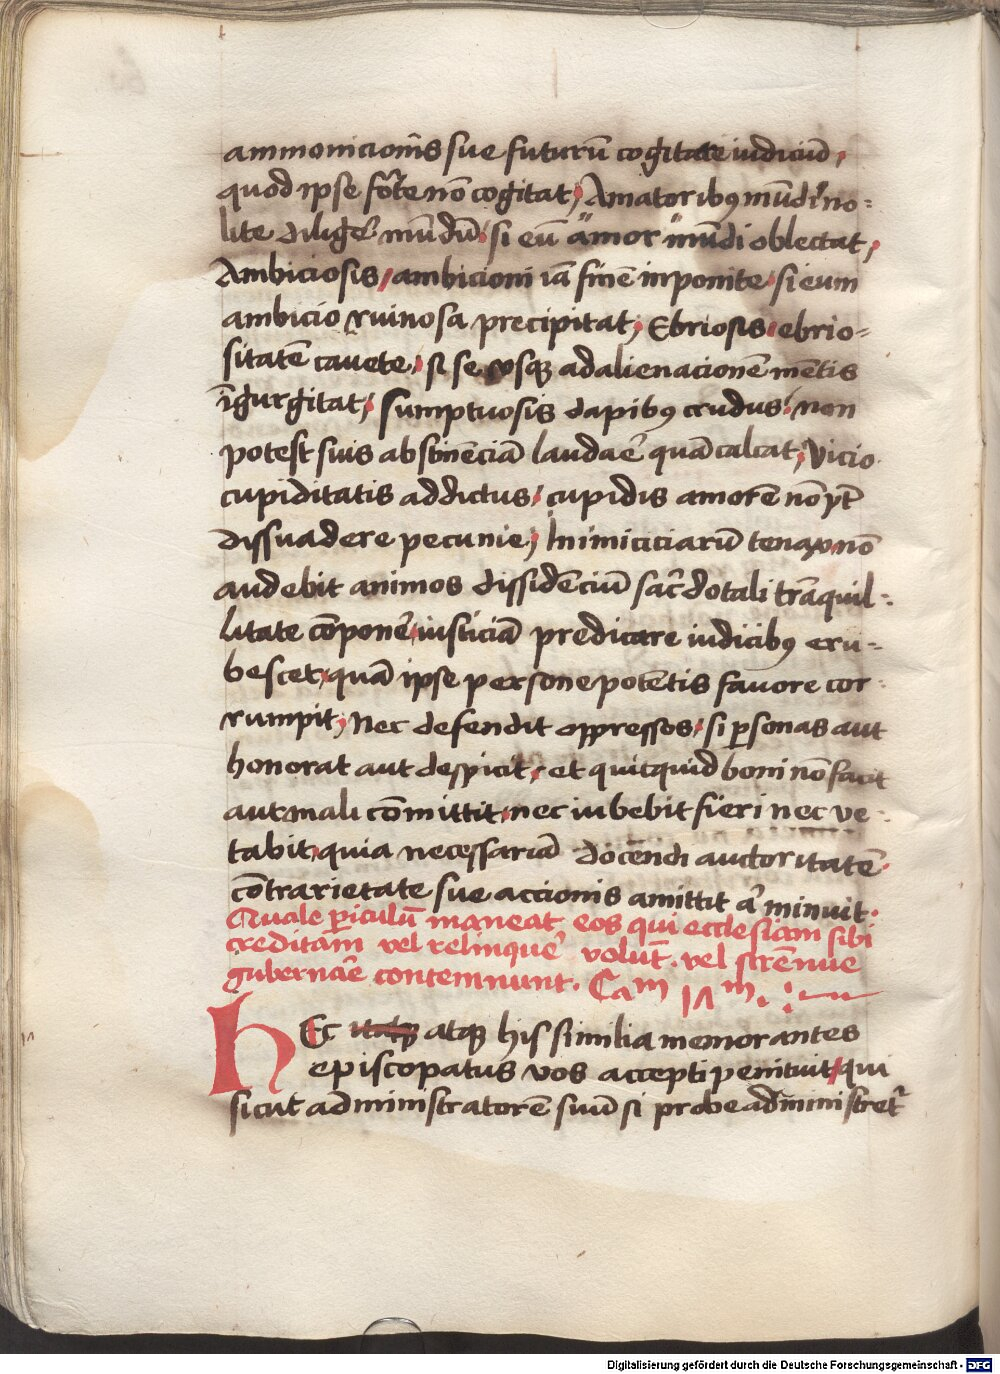 ammonicionis sue futurū cogitate iudiciū,
quod ipse forte nō cogitat, Amatoribꝯ mūdi no-
lite diligē mūdū, si eū amor mūdi oblectat,
Ambiciosis, ambicioni iā finē inponite, si eum
ambicio ruinosa precipitat, Ebriosis, ebrio-
sitatē cavete, si se usqꝫ ad alienacionē mētis
īgurgitat, Sumptuosis dapibꝯ crudus, non
potest suis abstinēciā laudaē quā calcat, Vicio
cupiditatis addictus, cupidis amorē nō pt̄
dissuadere pecunie, Inimiciciarū tenax nō
audebit animos dissidēciū sac̄dotali trāquil-
litate cōponē, iusticiā predicare iudicibꝯ eru-
bescet, quā ipse persone potētis favore cor-
rumpit, Nec defendit oppressos, si ꝑsonas aut
honorat aut despicit, et quitquid boni nō facit
aut mali cōmittit, nec iubebit fieri nec ve-
tabit, quia necessariā docendi auctoritatē
cōtrarietate sue accionis amittit aꝉ minuit.
Quale ꝑiculū maneat eos qui ecclesiam sibi
creditam vel relinquē volūt, vel strēnue
gubernāe contemnunt. Cam
HEc atqꝫ his similia memorantes
episcopatus vos accepti penituit, qui
sicut administratorē suū si probe administret̄
Digitalisierung gefördert durch die Deutsche Forschungsgemeinschaft - DFG